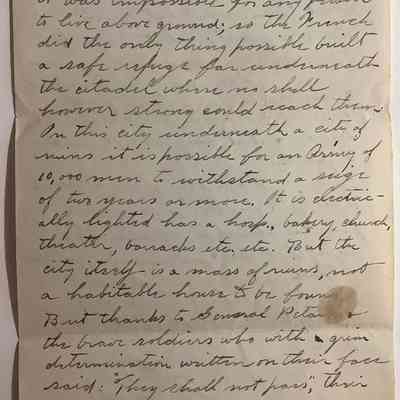 it was impossible for any person
to live above ground; so the French
did the only thing possible built
a safe refuge far underneath
the citadel where no shell
however strong could reach them.
In this city underneath a city of
ruins it is possible for an Army of
10,000 men to withstand a seige
of two years or more. It is electric-
ally lighted has a hosp., bakery, church,
theater, barracks etc. etc. But the
city itself is a mass of ruins, not
a habitable house to be found
But thanks to General Petain &
the brave soldiers who with a grim
determination written on their face
said: "They shall not pass", their